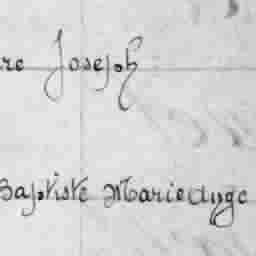 re Joseph
Baptiste Marie Ange